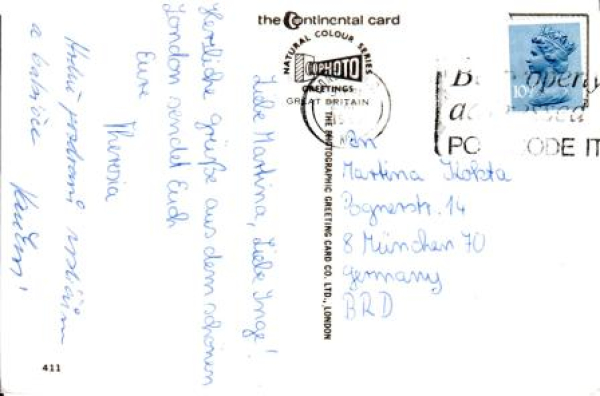 the Continental card
NATURAL COLOUR SERIES
COPHOTO
GREETINGS
GREAT BRITAIN
THE PHOTOGRAPHIC GREETING CARD CO. LTD., LONDON
10
PO CODE IT
Liebe Martina, Liebe Inge!
Herzliche Grüße aus dem schönen
London sendet Euch
Eure
Theresia
An
Martina Kokta
Pognerstr. 14
8 München 70
Germany
BRD
411